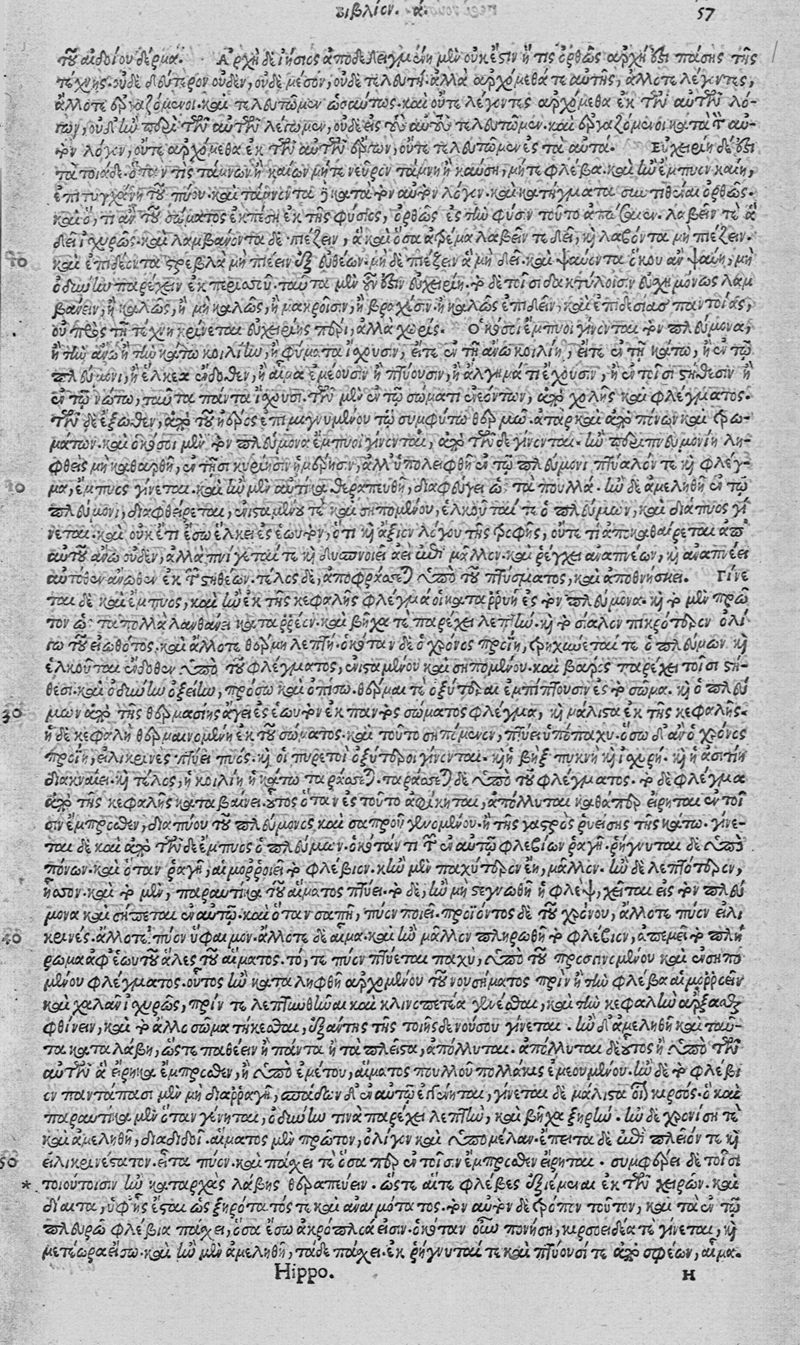 βιβλίον. α. 57
τοῦ αἰδοίου δέρμα. Ἀρχὴ δὲ ἰήσιος ἀποδεδειγμένη μὲν οὐκ ἔστιν ἥ τις ὀρθῶς ἀρχή ἐστι πάσης τῆς
τέχνης. οὐδὲ δεύτερον οὐδὲν, οὐδὲ μέσον, οὐδὲ τελευτή. ἀλλὰ ἀρχόμεθά τε αὐτῆς, ἄλλοτε λέγοντες,
ἄλλοτε ἐργαζόμενοι. καὶ τελευτῶμεν ὡσαύτως. καὶ οὔτε λέγοντες ἀρχόμεθα ἐκ τῶν αὐτῶν λό-
γων, οὐδ' ἢν περὶ τῶν αὐτῶν λέγωμεν, οὐδὲ εἰς τοὺς αὐτοὺς τελευτῶμεν. καὶ ἐργαζόμενοι κατὰ τὸν αὐ-
τὸν λόγον, οὔτε ἀρχόμεθα ἐκ τῶν αὐτῶν ἔργων, οὔτε τελευτῶμεν ἐς τὰ αὐτά. Εὐχειρίη δέ ἐστι
τὰ τοιάδε. ὅταν τις τάμνων ἢ καίων μήτε νεῦρον τάμνῃ ἢ καύσῃ, μήτε φλέβα. καὶ ἢν ἔμπυον καίῃ,
ἐπιτυγχάνῃ τοῦ πύου. καὶ τάμνοντα ἢ κατὰ τὸν αὐτὸν λόγον. καὶ κατήγματα συντιθέναι ὀρθῶς.
καὶ ὅ, τι ἂν τοῦ σώματος ἐκπέσῃ ἐκ τῆς φύσιος, ὀρθῶς ἐς τὴν φύσιν τοῦτο ἀπῶσαι. λαβεῖν τε ἃ
δεῖ ἰσχυρῶς. καὶ λαμβάνοντα δὲ πιέζειν, ἃ καὶ ὅσα ἀτρέμα λαβεῖν τε δεῖ, καὶ λαβόντα μὴ πιέζειν.
καὶ ἐπιδέοντα στρεβλὰ μὴ πιέειν ἐξ εὐθέων. μηδὲ πιέζειν ἃ μὴ δεῖ. καὶ ψαύοντα ὅκου ἂν ψαύῃ, μὴ
ὀδύνην παρέχειν ἐκ περισσοῦ. ταῦτα μὲν οὖν ἐστιν εὐχειρίη. τὸ δὲ τοῖσι δακτύλοισιν εὐσχημόνως λαμ
βάνειν, ἢ καλῶς, ἢ μὴ καλῶς, ἢ μακροῖσιν, ἢ βραχέσιν. ἢ καλῶς ἐπιδεῖν, καὶ ἐπιδέσιας παντοίας,
οὐ πρὸς τῇ τέχνῃ κρίνεται εὐχειρίης πέρι, ἀλλὰ χωρίς. Ὁκόσοι ἔμπυοι γίνονται τὸν πλεύμονα,
ἢ τὴν ἄνω ἢ τὴν κάτω κοιλίην, ἢ φύματα ἴσχουσιν, εἴτε ἐν τῇ ἄνω κοιλίῃ, εἴτε ἐν τῇ κάτω, ἢ ἐν τῷ
πλεύμονι, ἢ ἕλκεα ἔνδοθεν, ἢ αἷμα ἐμέουσιν ἢ πτύουσιν, ἢ ἄλγημά τι ἔχουσιν, ἢ ἐν τοῖσι στήθεσιν ἢ
ἐν τῷ νώτῳ, ταῦτα πάντα ἴσχουσι. τῶν μὲν ἐν τῷ σώματι ἐνεόντων, ἀπὸ χολῆς καὶ φλέγματος.
τῶν δὲ ἔξωθεν, ἀπὸ τοῦ ἠέρος ἐπιμιγνυμένου τῷ συμφύτῳ θερμῷ. ἀτὰρ καὶ ἀπὸ πόνων καὶ τρω-
μάτων. καὶ ὁκόσοι μὲν τὸν πλεύμονα ἔμπυοι γίνονται, ἀπὸ τῶνδε γίνονται. ἢν περιπνευμονίῃ λη-
φθεὶς μὴ καθαρθῇ, ἐν τῇσι κυρίῃσιν ἡμέρῃσιν, ἀλλ' ὑπολειφθῇ ἐν τῷ πλεύμονι πτύαλόν τε καὶ φλέγ-
μα, ἔμπυος γίνεται. καὶ ἢν μὲν αὐτίκα θεραπευθῇ, διαφεύγει ὡς τὰ πουλλά. ἢν δὲ ἀμεληθῇ ἐν τῷ
πλεύμονι, διαφθείρεται, ἐνισταμένου τε καὶ σηπομένου, ἑλκοῦταί τε ὁ πλεύμων, καὶ διάπυος γί
νεται. καὶ οὐκ ἔτι ἔσω ἕλκει ἐς ἑωυτὸν, ὅτι καὶ ἄξιον λόγου τῆς τροφῆς, οὔτε τι ἀποκαθαίρεται ἀπ'
αὐτοῦ ἄνω οὐδὲν, ἀλλὰ πνίγεταί τε καὶ δυσπνοιέει αἰεὶ ἐπὶ μᾶλλον. καὶ ῥέγχει ἀναπνέων, καὶ ἀναπνέει
αὐτόθεν ἄνωθεν ἐκ τῶν στηθέων. τέλος δὲ, ἀποφράσσεται ὑπὸ τοῦ πτύσματος, καὶ ἀποθνήσκει. Γίνε
ται δὲ καὶ ἔμπυος, καὶ ἢν ἐκ τῆς κεφαλῆς φλέγμα οἱ καταρρυῇ ἐς τὸν πλεύμονα. καὶ τὸ μὲν πρῶ
τον ὡς τὰ πολλὰ λανθάνει καταρρέον. καὶ βῆχά τε παρέχει λεπτὴν. καὶ τὸ σίαλον πικρότερον ὀλί
γῳ τοῦ εἰωθότος. καὶ ἄλλοτε θέρμη λεπτή. ὁκόταν δὲ ὁ χρόνος προΐῃ, τρηχύνεταί τε ὁ πλεύμων καὶ
ἑλκοῦται ἔνδοθεν ὑπὸ τοῦ φλέγματος, ἐνισταμένου καὶ σηπομένου. καὶ βάρος παρέχει τοῖσι στή-
θεσι. καὶ ὀδύνην ὀξείην, πρόσω καὶ ὀπίσω. θέρμαι τε ὀξύτεραι ἐμπίπτουσιν ἐς τὸ σῶμα. καὶ ὁ πλεύ
μων ἀπὸ τῆς θερμασίης ἄγει ἐς ἑωυτὸν ἐκ παντὸς σώματος φλέγμα, καὶ μάλιστα ἐκ τῆς κεφαλῆς.
ἡ δὲ κεφαλὴ θερμαινομένη ἐκ τοῦ σώματος. καὶ τοῦτο σηπόμενον, πτύει ὑπόπαχυ. ὅσῳ δ' ἂν ὁ χρόνος
προΐῃ, εἰλικρινὲς πτύει πύος. καὶ οἱ πυρετοὶ ὀξύτεροι γίνονται. καὶ ἡ βὴξ πυκνὴ καὶ ἰσχυρή. καὶ ἡ ἀσιτίη
διακναίει. καὶ τέλος, ἡ κοιλίη ἡ κάτω ταράσσεται. ταράσσεται δὲ ὑπὸ τοῦ φλέγματος. τὸ δὲ φλέγμα
ἀπὸ τῆς κεφαλῆς καταβαίνει. οὗτος ὅταν ἐς τοῦτο ἀφίκηται, ἀπόλλυται. καθάπερ εἴρηται ἐν τοῖ
σιν ἔμπροσθεν, διαπύου τοῦ πλεύμονος καὶ σαπροῦ γενομένου. ἢ τῆς γαστρὸς ῥυείσης τῆς κάτω. γίνε-
ται δὲ καὶ ἀπὸ τῶνδε ἔμπυος ὁ πλεύμων. ὁκόταν τι τῶν ἐν αὐτῷ φλεβίων ῥαγῇ. ῥήγνυται δὲ ὑπὸ
πόνων. καὶ ὅταν ῥαγῇ, αἱμορροιεῖ τὸ φλέβιον. κἢν μὲν παχύτερον ἔῃ, μᾶλλον. ἢν δὲ λεπτότερον,
ἧσσον. καὶ τὸ μὲν, παραυτίκα τοῦ αἵματος πτύει. τὸ δὲ, ἢν μὴ στεγνωθῇ ἡ φλὲψ, χεῖται εἰς τὸν πλεύ
μονα καὶ σήπεται ἐν αὐτῷ. καὶ ὅταν σαπῇ, πύον ποιεῖ. προϊόντος δὲ τοῦ χρόνου, ἄλλοτε πύον εἰλι
κρινές. ἄλλοτε πύον ὕφαιμον. ἄλλοτε δὲ αἷμα. καὶ ἢν μᾶλλον πληρωθῇ τὸ φλέβιον, ἀπεμέει τὸ πλή
ρωμα ἀφ' ἑωυτοῦ ἁλὲς τοῦ αἵματος. τό, τε πύον πτύεται παχὺ, ὑπὸ τοῦ προσγινομένου καὶ ἐνσηπο
μένου φλέγματος. οὗτος ἢν καταληφθῇ ἀρχομένου τοῦ νουσήματος πρὶν ἢ τὴν φλέβα αἱμορροεῖν
καὶ χαλᾶν ἰσχυρῶς, πρίν τε λεπτυνθῆναι καὶ κλινοπετέα γενέσθαι, καὶ τὴν κεφαλὴν ἄρξασθαι
φθίνειν, καὶ τὸ ἄλλο σῶμα τήκεσθαι, ἐξάντης τῆς τοιῆσδε νούσου γίνεται. ἢν δ' ἀμεληθῇ καὶ ταῦ-
τα καταλάβῃ, ὥστε παθέειν ἢ πάντα ἢ τὰ πλεῖστα, ἀπόλλυται. ἀπόλλυται δ' οὗτος ἢ ὑπὸ τῶν
αὐτῶν ἃ εἴρηται ἔμπροσθεν, ἢ ὑπὸ ἐμέτου, αἵματος πουλλοῦ πολλάκις ἐμεομένου. ἢν δὲ τὸ φλέβι
ον παντάπασι μὲν μὴ διαρραγῇ, σπάδων δ' ἐν αὐτῷ ἐγγένηται, γίνεται δὲ μάλιστα οἷον κιρσός. ὃ καὶ
παραυτίκα μὲν ὅταν γένηται, ὀδύνην τινὰ παρέχει λεπτὴν, καὶ βῆχα ξηρήν. ἢν δὲ χρονίσῃ τε
καὶ ἀμεληθῇ, διαδιδοῖ. αἵματος μὲν πρῶτον, ὀλίγον καὶ ὑπομέλαν. ἔπειτα δὲ ἐπὶ πλεῖόν τε καὶ
εἰλικρινέστατον. εἶτα πύον. καὶ πάσχει τε ὅσα περ ἐν τοῖσιν ἔμπροσθεν εἴρηται. συμφέρει δὲ τοῖσι
τοιούτοισιν ἢν κατ' ἀρχὰς λάβῃς θεραπεύειν. ὥστε αἵ τε φλέβες ἐξίενται ἐκ τῶν χειρῶν. καὶ
δίαιτα, ὑφ' ἧς ἔσται ὡς ξηρότατός τε καὶ ἀναιμότατος. τὸν αὐτὸν δὲ τρόπον τοῦτον, καὶ τὰ ἐν τῷ
πλευρῷ φλέβια πάσχει, ὅσα ἔσω ἀκρόπλοά εἰσιν. ὁκόταν οὖν πονήσῃ, κιρσοειδέα τε γίνεται, καὶ
μετέωρα εἴσω. καὶ ἢν μὲν ἀμεληθῇ, τάδε πάσχει. ἐκρήγνυταί τε καὶ πτύουσί τε ἀπὸ σφέων, αἷμα.
Hippo. H
10
20
30
40
50
*